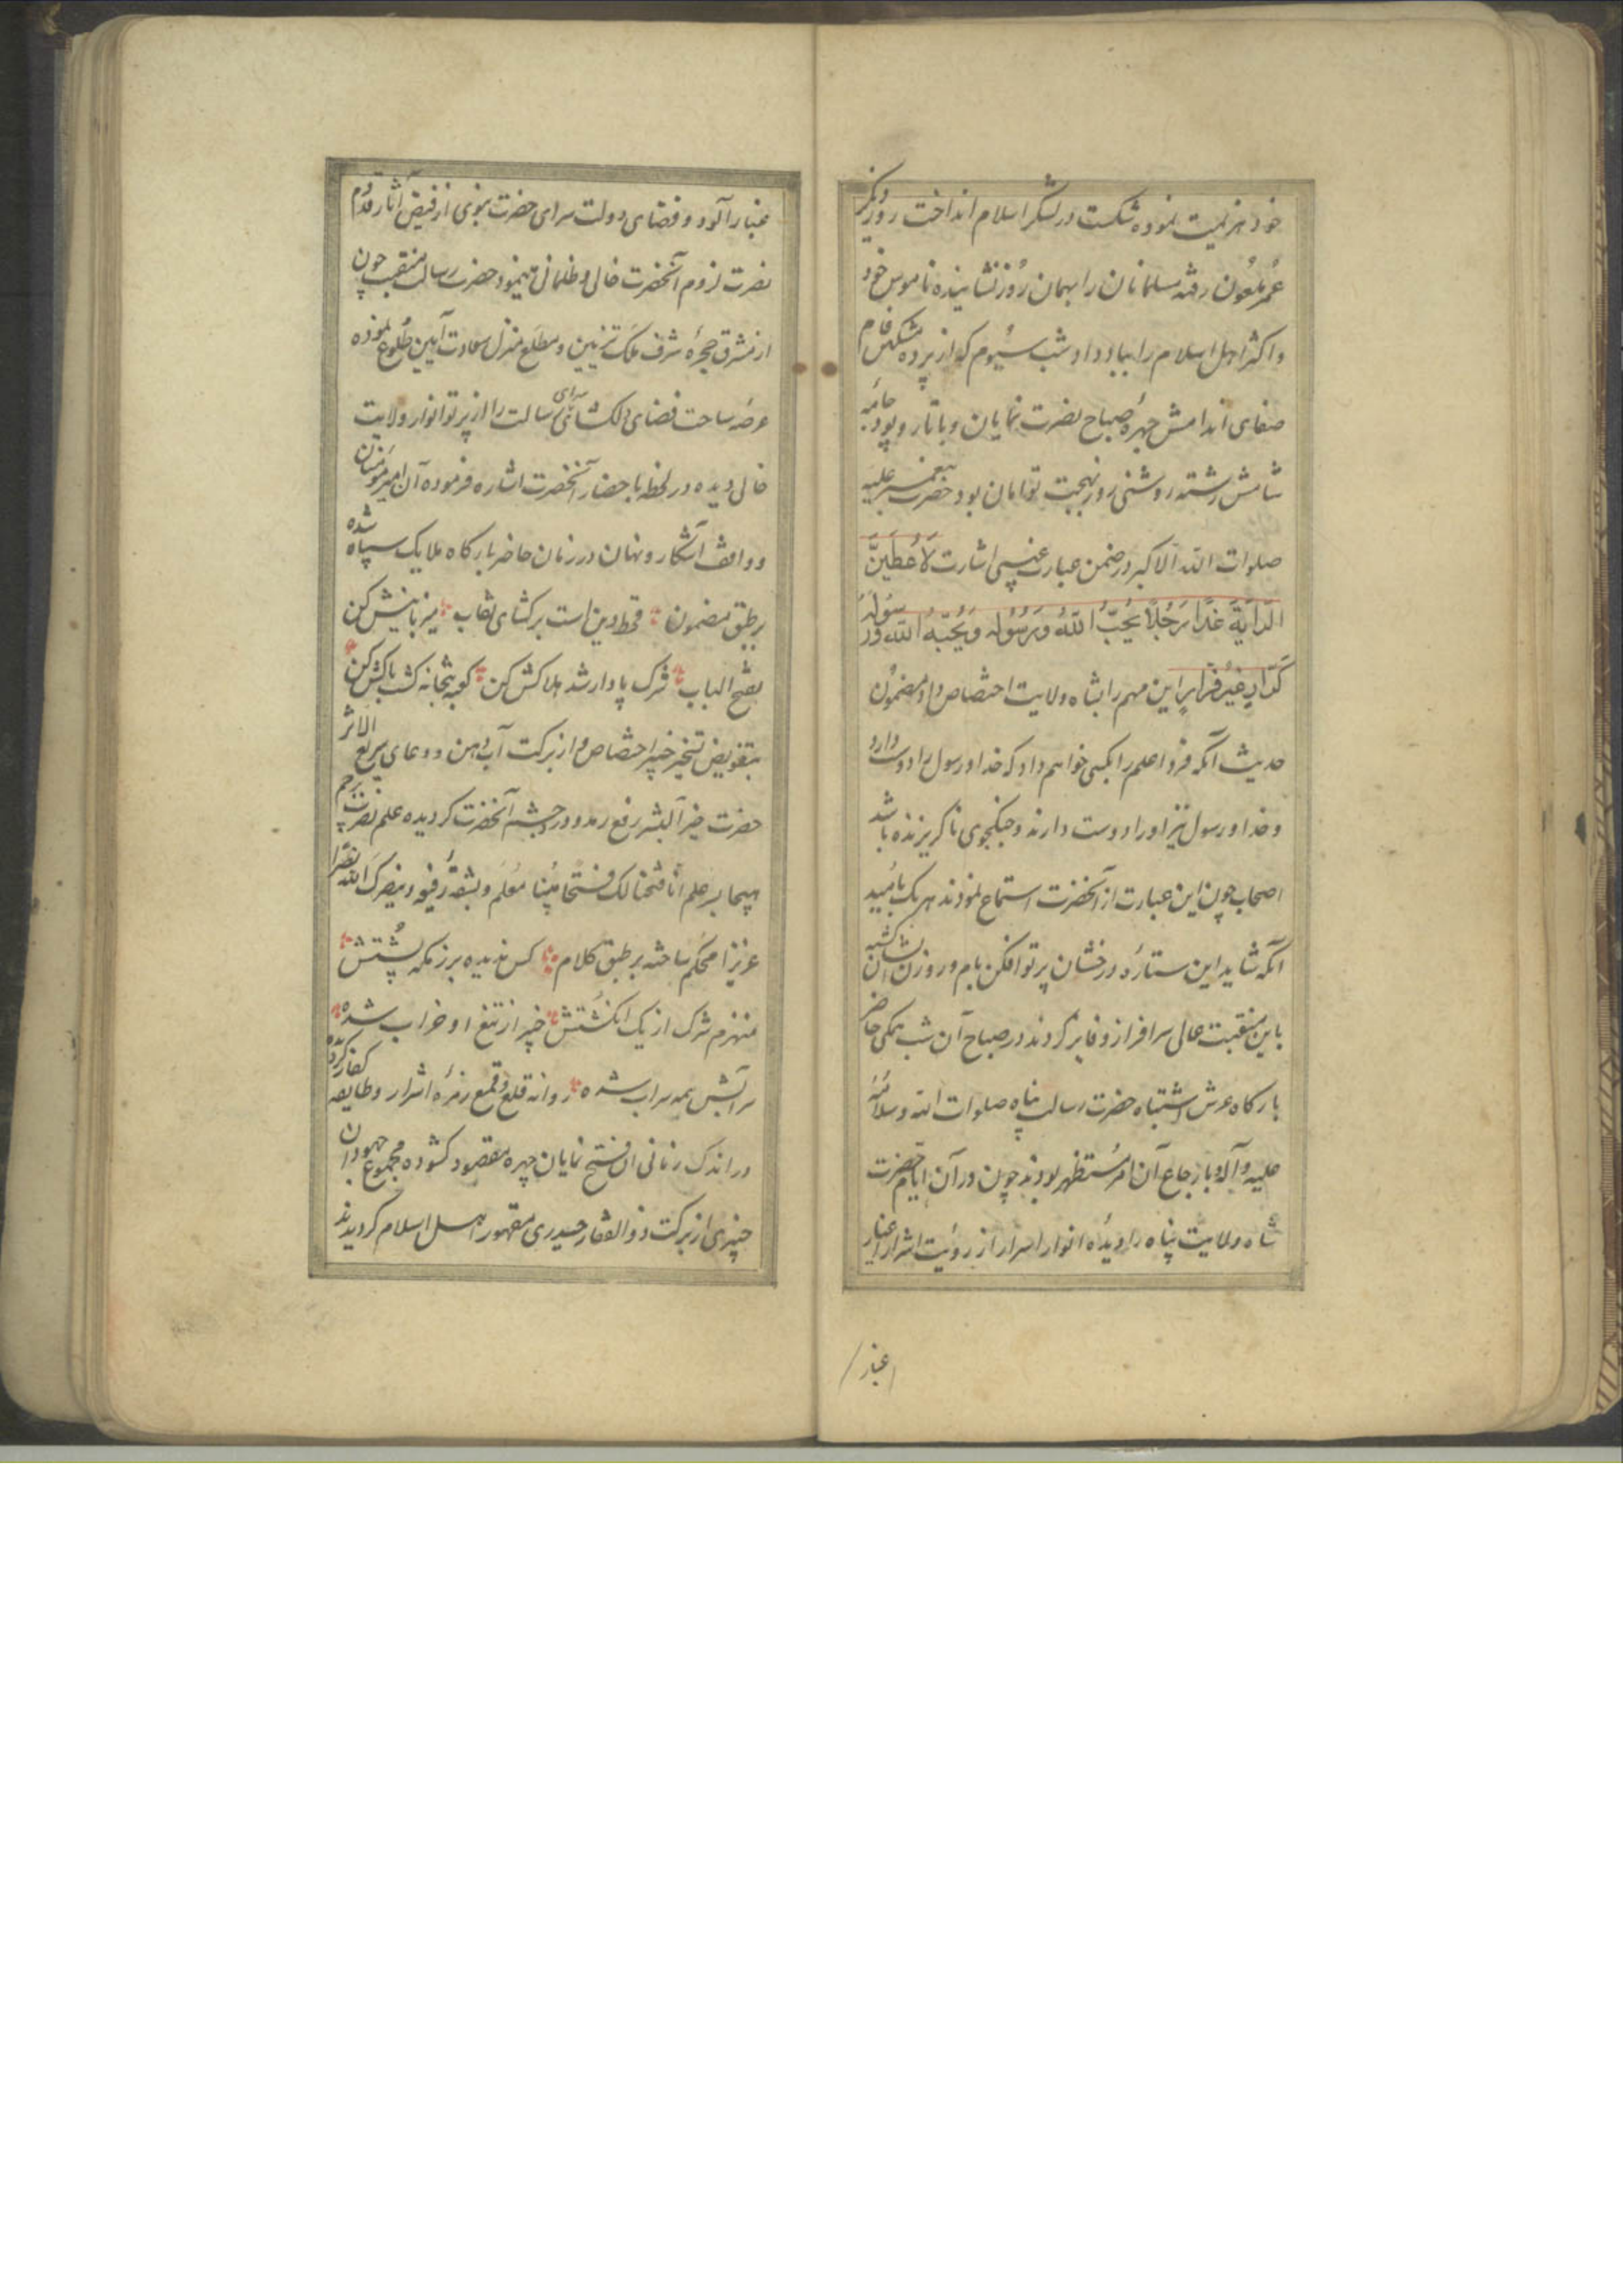 خود هزیمت نموده شکست در لشکر اسلام انداخت روز دیگر
عمر ملعون رفته مسلمانان را بهمان روز نشانیده ناموس خود
و اکثر اهل اسلام را بباد داد و شب سیوم که از پرده مشکین فام
صفای اندامش چهره صباح نصرت نمایان و با تار و پود جامه
شامش رشته روشنی روز بهجت توامان بود حضرت پیغمبر علیه
صلوات الله الاکبر در ضمن عبارت غیبی اشارت لَاُعطِیَنَّ
الرّایَةَ غَدًا رَجُلًا یُحِبُّ اللهَ وَرَسُولَه وَیُحِبُّهُ اللهُ وَرَسُولُهُ
کَرّارٍ غیرُ فَرّارٍ این مهم را بشاه ولایت اختصاص داد و مضمون
حدیث آنکه فردا علم را بکسی خواهم داد که خدا و رسول را دوست دارد
و خدا و رسول نیز او را دوست دارند و جنکجوی ناکریزنده باشد
اصحاب چون این عبارت از آنحضرت استماع نمودند هر یک بامید
آنکه شاید این ستاره درخشان پرتو افکن بام و روزن ایشان کشته
باین منقبت عالی سرافراز و فایز کردند در صباح آن شب همکی حاضر
بارکاه عرش اشتباه حضرت رسالت پناه صلوات الله وسلامه
علیه وآله و بارجاع آن امر مستظهر بودند چون در آن ایام حضرت
شاه ولایت پناه را دیده انوار اسرار از رؤیت اشرار اغیار
غبار
غبار آلود و فضای دولت سرای حضرت نبوی از فیض آثار قدوم
نصرت لزوم آنحضرت خالی و ظلمانی مینمود حضرت رسالت منقبت چون
از مشرق حجره شرف ملک تزیین و مطلع منزل سعادت آیین طلوع نموده
عرصه ساحت فضای دلکشای سرای رسالت را از پرتو انوار ولایت
خالی دیده در لحظه باحضار آنحضرت اشاره فرموده آن امیر مؤمنان
و واقف آشکار و نهان در زمان حاضر بارکاه ملایک سپاه شده
بر طبق مضمون قحط دین است برکشای نقاب میزبانیش کن
بفتح الباب شرک پادار شد هلاکش کن کعبه بتخانه کشت پاکش کن
بتفویض تسخیر خیبر اختصاص و از برکت آب دهن و دعای سریع الاثر
حضرت خیر البشر رفع رمد و درد چشم آنحضرت کردیده علم نصرت پرچم
هیجا بر علم انا فتحنا لک فتحا مبینا معلم و بشقه رفیعه وینصرک الله نصرا
عزیزا محکم ساخته بر طبق کلام کس ندیده برزمکه پشتش
منهزم شرک از یک انکشتش خیبر از تیغ او خراب شده
سر آبش همه سراب شده روانه قلع و قمع زمره اشرار و طایفه کفار کردیده
در اندک زمانی آن فتح نمایان چهره مقصود کشوده مجموع جهودان
خیبری از برکت ذوالفقار حیدری مقهور اهل اسلام کردیدند